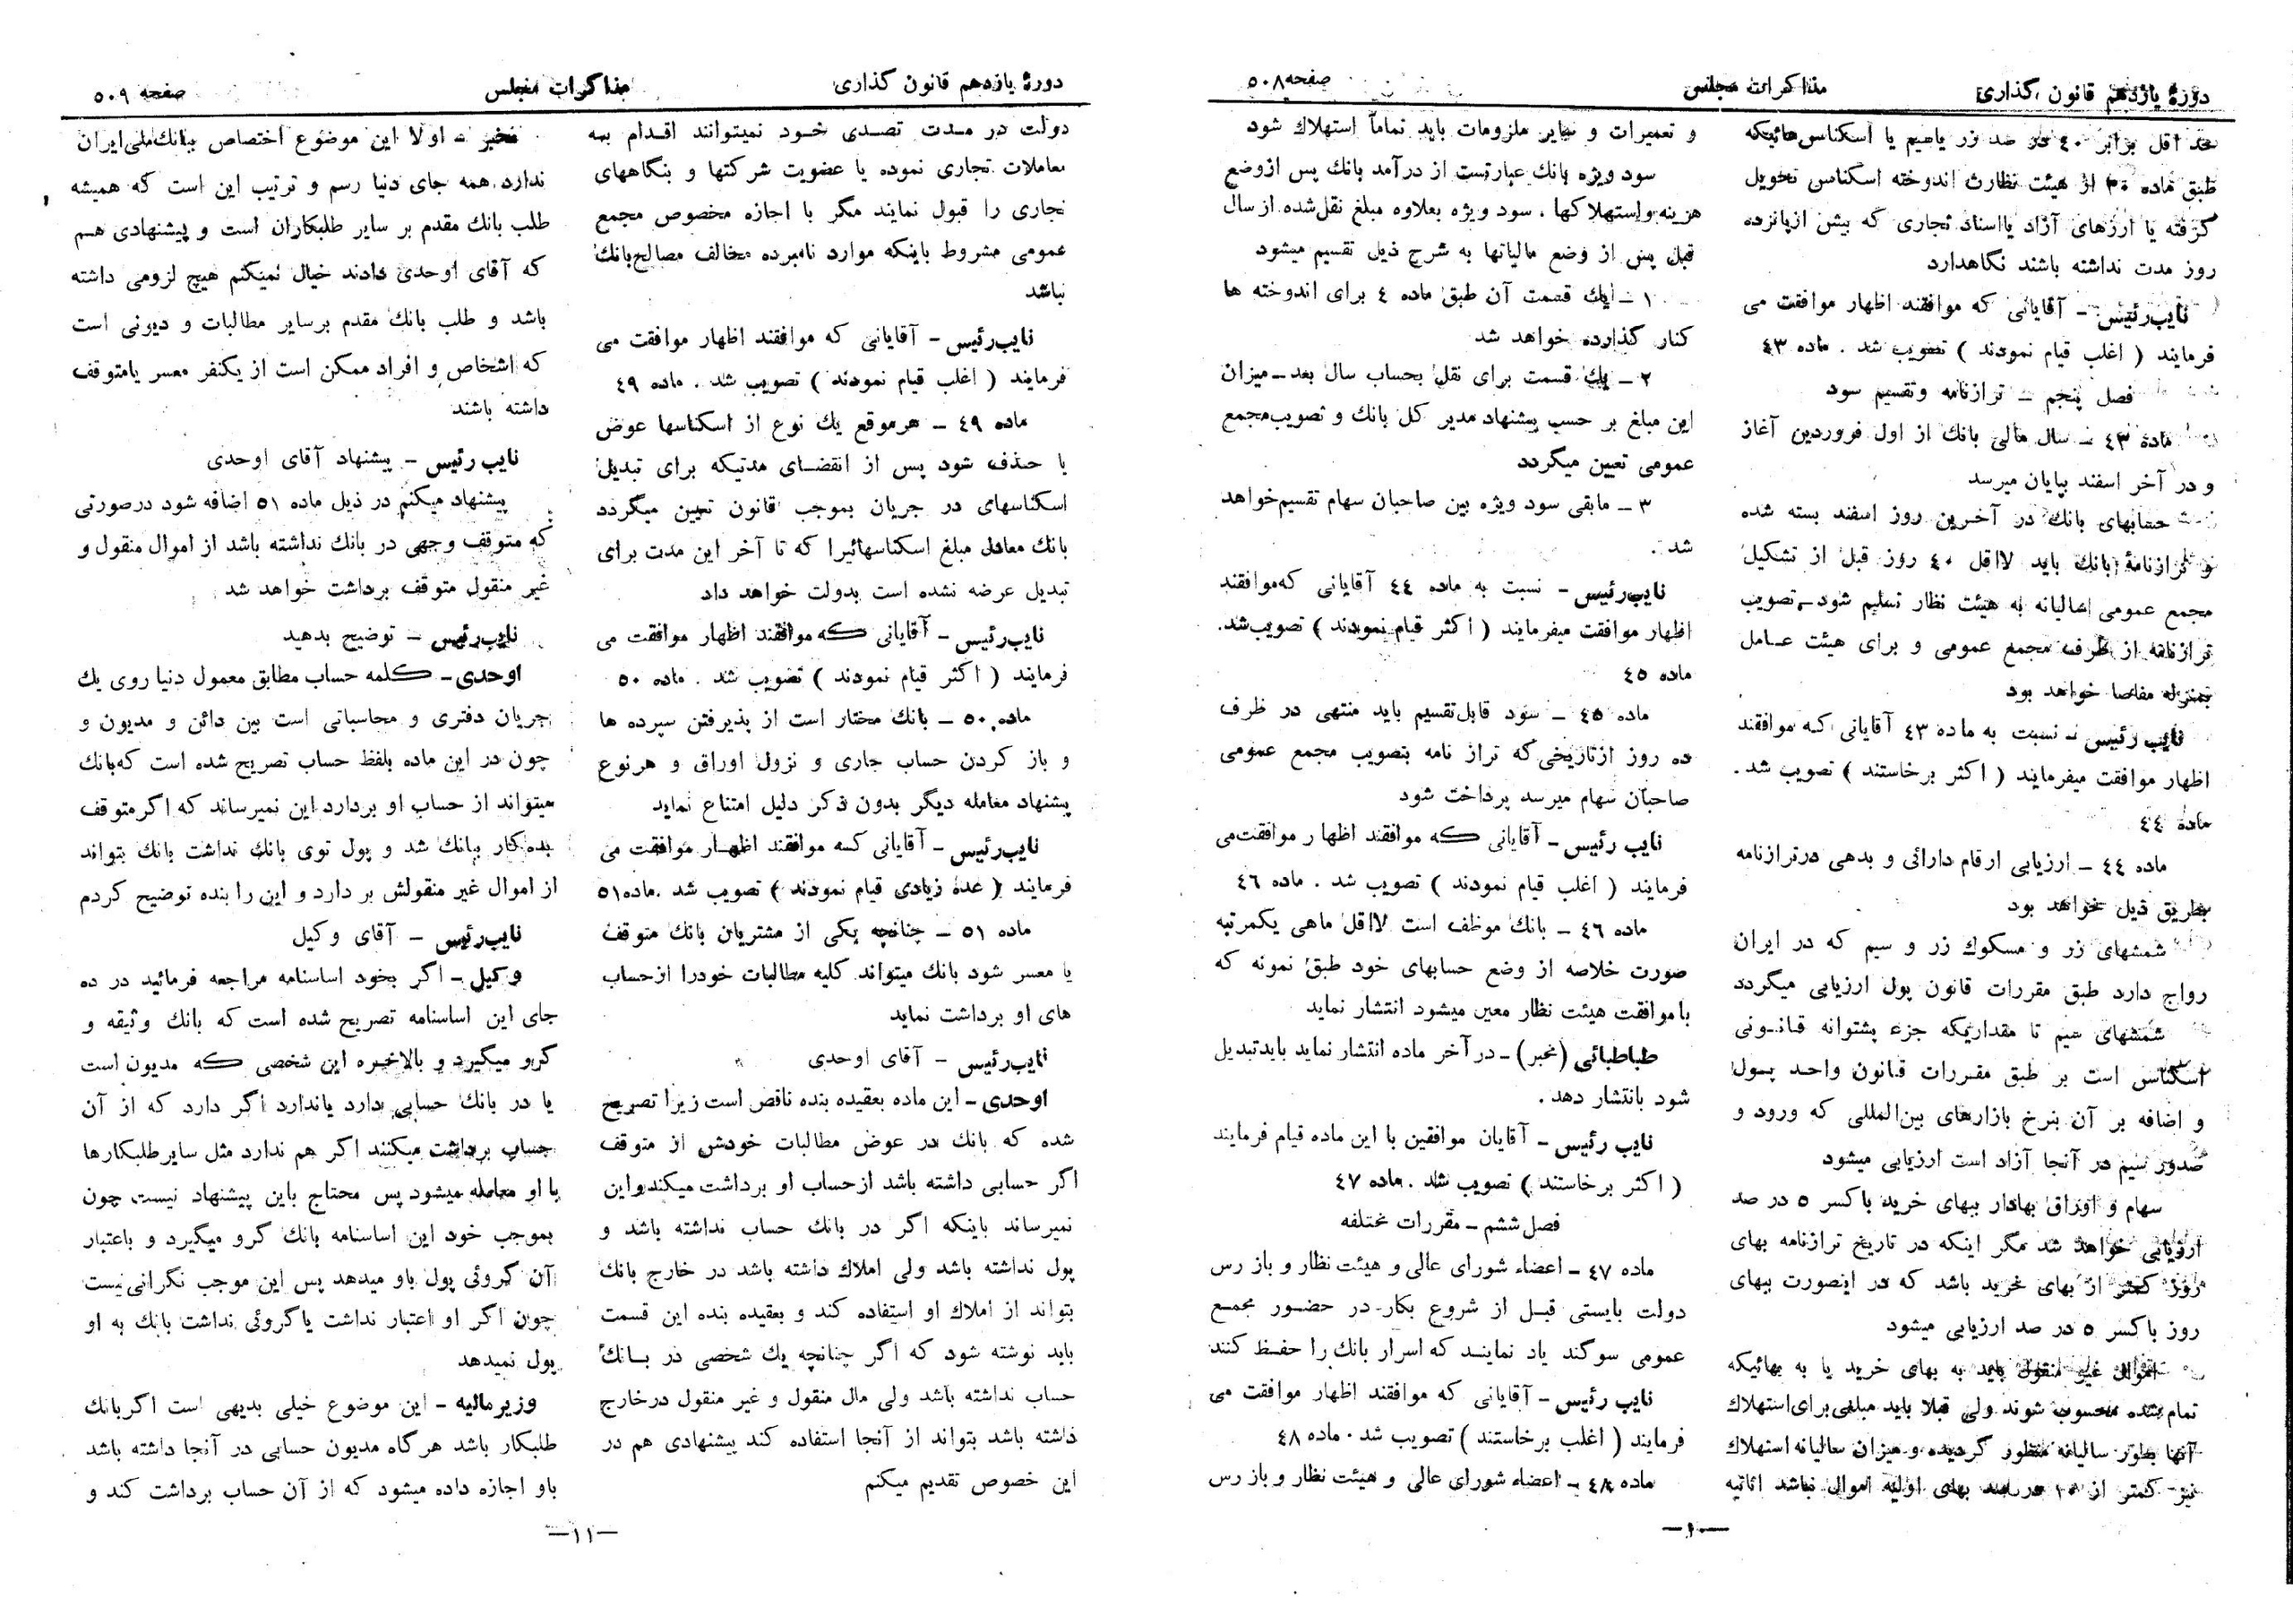 دورهٔ یازدهم قانون گذاری
مذاکرات مجلس
صفحه ۵۰۸
حد اقل برابر ۴۰ در صد زر یاسیم یا اسکناس‌هائیکه
طبق ماده ۳۰ از هیئت نظارت اندوخته اسکناس تحویل
گرفته یا ارزهای آزاد یااسناد تجاری که بیش ازپانزده
روز مدت نداشته باشند نگاهدارد
نایب‌رئیس – آقایانی که موافقند اظهار موافقت می
فرمایند ( اغلب قیام نمودند ) تصویب شد . ماده ۴۳
فصل پنجم – ترازنامه وتقسیم سود
ماده ۴۳ – سال مالی بانك از اول فروردین آغاز
و در آخر اسفند بپایان میرسد
حسابهای بانك در آخرین روز اسفند بسته شده
و ترازنامهٔ بانك باید لااقل ۴۰ روز قبل از تشکیل
مجمع عمومی سالیانه به هیئت نظار تسلیم شود – تصویب
ترازنامه از طرف مجمع عمومی و برای هیئت عامل
بمنزله مفاصا خواهد بود
نایب رئیس – نسبت به ماده ۴۳ آقایانی که موافقند
اظهار موافقت میفرمایند ( اکثر برخاستند ) تصویب شد .
ماده ۴۴
ماده ۴۴ – ارزیابی ارقام دارائی و بدهی درترازنامه
بطریق ذیل خواهد بود
شمشهای زر و مسکوك زر و سیم که در ایران
رواج دارد طبق مقررات قانون پول ارزیابی میگردد
شمشهای سیم تا مقداریکه جزء پشتوانه قانونی
اسکناس است بر طبق مقررات قانون واحد پول
و اضافه بر آن بنرخ بازارهای بین‌المللی که ورود و
صدور سیم در آنجا آزاد است ارزیابی میشود
سهام و اوراق بهادار ببهای خرید باکسر ۵ در صد
ارزیابی خواهد شد مگر اینکه در تاریخ ترازنامه بهای
روز کمتر از بهای خرید باشد که در اینصورت ببهای
روز باکسر ۵ در صد ارزیابی میشود
اموال غیر منقول باید به بهای خرید یا به بهائیکه
تمام شده محسوب شوند ولی قبلا باید مبلغی برای‌استهلاك
آنها بطور سالیانه منظور گردیده و میزان سالیانه استهلاك
نیز کمتر از ۱۰ در صد بهای اولیه اموال نباشد اثاثیه
و تعمیرات و سایر ملزومات باید تماماً استهلاك شود
سود ویژه بانك عبارتست از درآمد بانك پس ازوضع
هزینه واستهلاکها . سود ویژه بعلاوه مبلغ نقل‌شده از سال
قبل پس از وضع مالیاتها به شرح ذیل تقسیم میشود
۱ – یك قسمت آن طبق ماده ۴ برای اندوخته ها
کنار گذارده خواهد شد
۲ – یك قسمت برای نقل بحساب سال بعد – میزان
این مبلغ بر حسب پیشنهاد مدیر کل بانك و تصویب‌مجمع
عمومی تعیین میگردد
۳ – مابقی سود ویژه بین صاحبان سهام تقسیم‌خواهد
شد .
نایب‌رئیس – نسبت به ماده ۴۴ آقایانی که‌موافقند
اظهار موافقت میفرمایند ( اکثر قیام نمودند ) تصویب‌شد.
ماده ۴۵
ماده ۴۵ – سود قابل‌تقسیم باید منتهی در ظرف
ده روز ازتاریخی‌که تراز نامه بتصویب مجمع عمومی
صاحبان سهام میرسد پرداخت شود
نایب رئیس – آقایانی که موافقند اظهار موافقت‌می
فرمایند ( اغلب قیام نمودند ) تصویب شد . ماده ۴۶
ماده ۴۶ – بانك موظف است لااقل ماهی یکمرتبه
صورت خلاصه از وضع حسابهای خود طبق نمونه که
باموافقت هیئت نظار معین میشود انتشار نماید
طباطبائی (مخبر) – در آخر ماده انتشار نماید بایدتبدیل
شود بانتشار دهد .
نایب رئیس – آقایان موافقین با این ماده قیام فرمایند
( اکثر برخاستند ) تصویب شد . ماده ۴۷
فصل ششم – مقررات مختلفه
ماده ۴۷ – اعضاء شورای عالی و هیئت نظار و باز رس
دولت بایستی قبل از شروع بکار در حضور مجمع
عمومی سوگند یاد نمایند که اسرار بانك را حفظ کنند
نایب رئیس – آقایانی که موافقند اظهار موافقت می
فرمایند ( اغلب برخاستند ) تصویب شد . ماده ۴۸
ماده ۴۸ – اعضاء شورای عالی و هیئت نظار و باز رس
–۱۰–
دورهٔ یازدهم قانون گذاری
مذاکرات مجلس
صفحه ۵۰۹
دولت در مدت تصدی خود نمیتوانند اقدام به
معاملات تجاری نموده یا عضویت شرکتها و بنگاههای
تجاری را قبول نمایند مگر با اجازه مخصوص مجمع
عمومی مشروط باینکه موارد نامبرده مخالف مصالح‌بانك
نباشد
نایب‌رئیس – آقایانی که موافقند اظهار موافقت می
فرمایند ( اغلب قیام نمودند ) تصویب شد . ماده ۴۹
ماده ۴۹ – هرموقع یك نوع از اسکناسها عوض
یا حذف شود پس از انقضای مدتیکه برای تبدیل
اسکناسهای در جریان بموجب قانون تعیین میگردد
بانك معادل مبلغ اسکناسهائیرا که تا آخر این مدت برای
تبدیل عرضه نشده است بدولت خواهد داد
نایب‌رئیس – آقایانی که موافقند اظهار موافقت می
فرمایند ( اکثر قیام نمودند ) تصویب شد . ماده ۵۰
ماده ۵۰ – بانك مختار است از پذیرفتن سپرده ها
و باز کردن حساب جاری و نزول اوراق و هرنوع
پشنهاد معامله دیگر بدون ذکر دلیل امتناع نماید
نایب‌رئیس – آقایانی که موافقند اظهار موافقت می
فرمایند ( عدهٔ زیادی قیام نمودند ) تصویب شد .ماده۵۱
ماده ۵۱ – چنانچه یکی از مشتریان بانك متوقف
یا معسر شود بانك میتواند کلیه مطالبات خودرا ازحساب
های او برداشت نماید
نایب‌رئیس – آقای اوحدی
اوحدی – این ماده بعقیده بنده ناقص است زیرا تصریح
شده که بانك در عوض مطالبات خودش از متوقف
اگر حسابی داشته باشد ازحساب او برداشت میکندواین
نمیرساند باینکه اگر در بانك حساب نداشته باشد و
پول نداشته باشد ولی املاك داشته باشد در خارج بانك
بتواند از املاك او استفاده کند و بعقیده بنده این قسمت
باید نوشته شود که اگر چنانچه یك شخصی در بانك
حساب نداشته باشد ولی مال منقول و غیر منقول درخارج
داشته باشد بتواند از آنجا استفاده کند پیشنهادی هم در
این خصوص تقدیم میکنم
مخبر – اولا این موضوع اختصاص ببانك‌ملی‌ایران
ندارد همه جای دنیا رسم و ترتیب این است که همیشه
طلب بانك مقدم بر سایر طلبکاران است و پیشنهادی هم
که آقای اوحدی دادند خیال نمیکنم هیچ لزومی داشته
باشد و طلب بانك مقدم برسایر مطالبات و دیونی است
که اشخاص و افراد ممکن است از یکنفر معسر یامتوقف
داشته باشند
نایب رئیس – پیشنهاد آقای اوحدی
پیشنهاد میکنم در ذیل ماده ۵۱ اضافه شود درصورتی
که متوقف وجهی در بانك نداشته باشد از اموال منقول و
غیر منقول متوقف برداشت خواهد شد
نایب‌رئیس – توضیح بدهید
اوحدی – کلمه حساب مطابق معمول دنیا روی یك
جریان دفتری و محاسباتی است بین دائن و مدیون و
چون در این ماده بلفظ حساب تصریح شده است که‌بانك
میتواند از حساب او بردارد این نمیرساند که اگر متوقف
بده‌کار ببانك شد و پول توی بانك نداشت بانك بتواند
از اموال غیر منقولش بر دارد و این را بنده توضیح کردم
نایب‌رئیس – آقای وکیل
وکیل – اگر بخود اساسنامه مراجعه فرمائید در ده
جای این اساسنامه تصریح شده است که بانك وثیقه و
گرو میگیرد و بالاخره این شخصی که مدیون است
یا در بانك حسابی دارد یاندارد اگر دارد که از آن
حساب برداشت میکنند اگر هم ندارد مثل سایرطلبکارها
با او معامله میشود پس محتاج باین پیشنهاد نیست چون
بموجب خود این اساسنامه بانك گرو میگیرد و باعتبار
آن گروئی پول باو میدهد پس این موجب نگرانی‌نیست
چون اگر او اعتبار نداشت یاگروئی نداشت بانك به او
پول نمیدهد
وزیر مالیه – این موضوع خیلی بدیهی است اگربانك
طلبکار باشد هرگاه مدیون حسابی در آنجا داشته باشد
باو اجازه داده میشود که از آن حساب برداشت کند و
–۱۱–